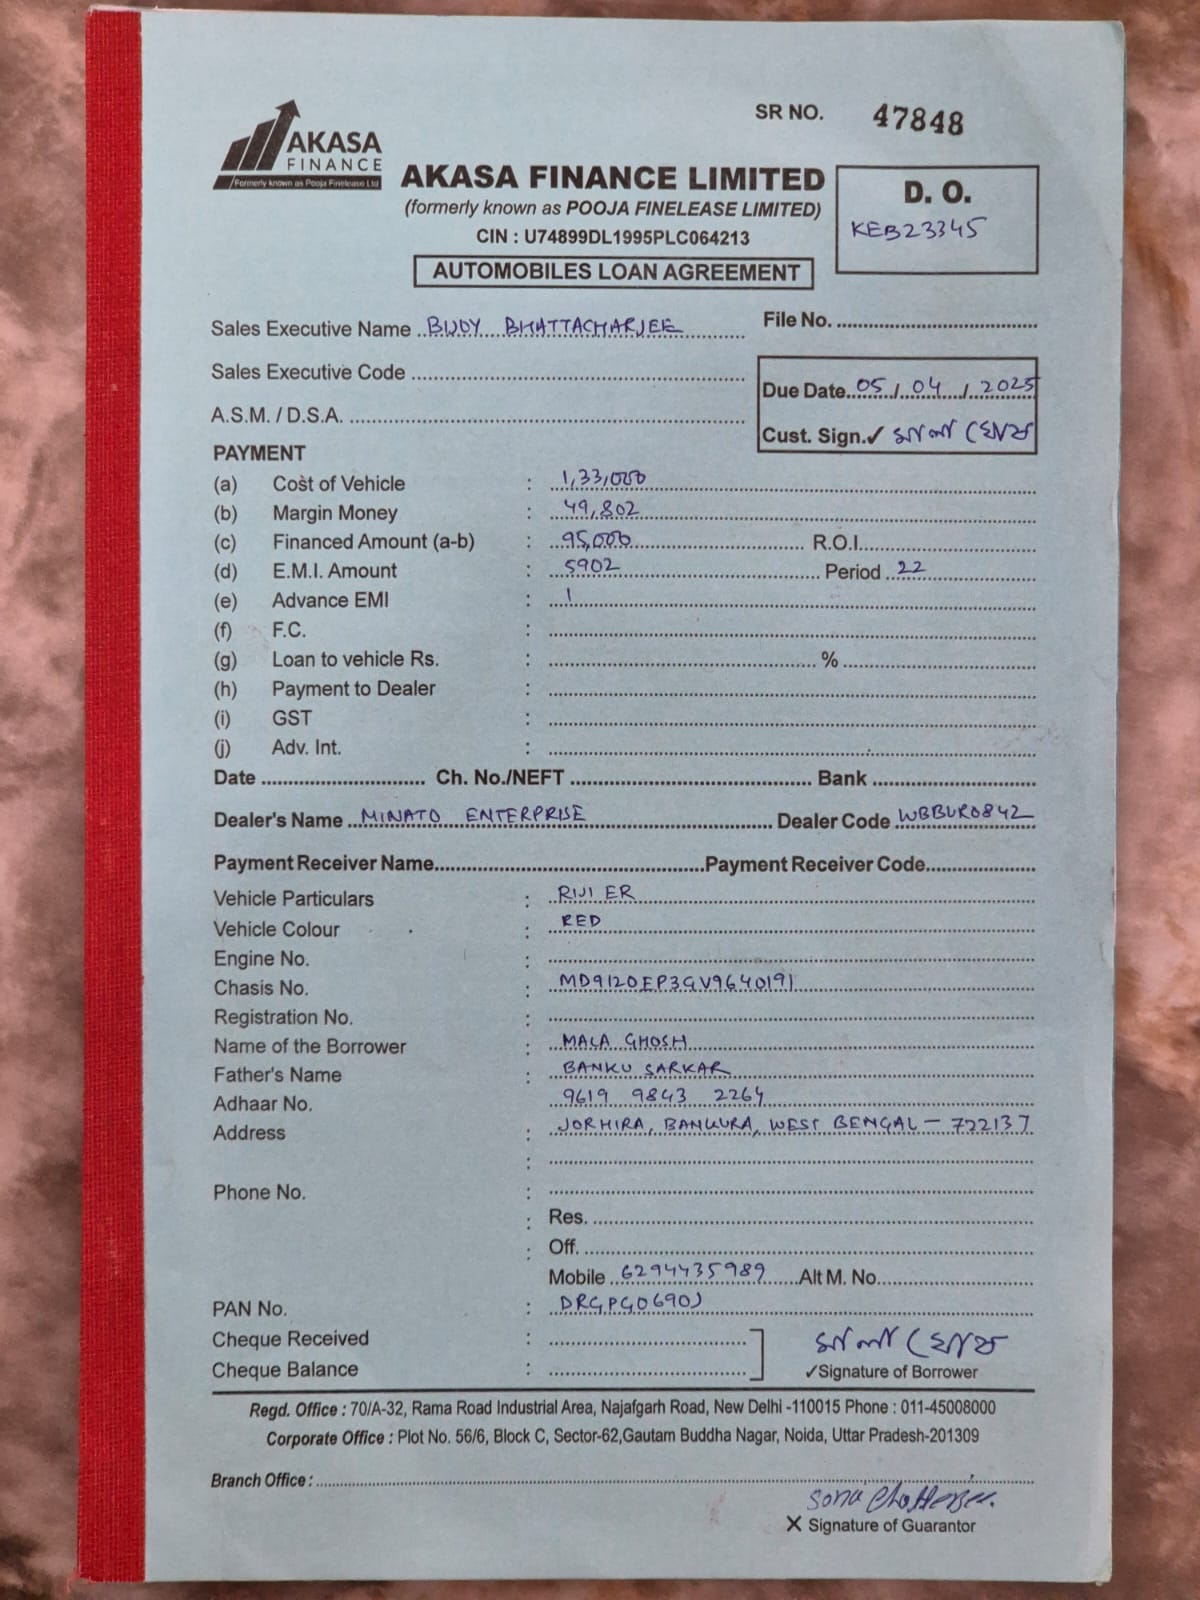 SR NO. 47848
AKASA
FINANCE
Formerly known as Pooja Finelease Ltd
AKASA FINANCE LIMITED
(formerly known as POOJA FINELEASE LIMITED)
CIN : U74899DL1995PLC064213
AUTOMOBILES LOAN AGREEMENT
D. O.
KEB23345
Sales Executive Name BIJOY BHATTACHARJEE
File No.
Sales Executive Code
Due Date 05/04/2025
A.S.M. / D.S.A.
Cust. Sign.✓ মালা ঘোষ
PAYMENT
(a) Cost of Vehicle : 1,33,000
(b) Margin Money : 49,802
(c) Financed Amount (a-b) : 95,000 R.O.I.
(d) E.M.I. Amount : 5902 Period 22
(e) Advance EMI : 1
(f) F.C. :
(g) Loan to vehicle Rs. : %
(h) Payment to Dealer :
(i) GST :
(j) Adv. Int. :
Date Ch. No./NEFT Bank
Dealer's Name MINATO ENTERPRISE Dealer Code WBBUR0842
Payment Receiver Name Payment Receiver Code
Vehicle Particulars : ER
Vehicle Colour : RED
Engine No. :
Chasis No. : MD912OEP3GV9640191
Registration No. :
Name of the Borrower : MALA GHOSH
Father's Name : BANKU SARKAR
Adhaar No. : 9619 9843 2264
Address : JORHIRA, BANKURA, WEST BENGAL - 722137
:
Phone No. :
: Res.
: Off.
Mobile 6294435989 Alt M. No.
PAN No. : DRGPG0690J
Cheque Received :
মালা ঘোষ
Cheque Balance :
✓Signature of Borrower
Regd. Office : 70/A-32, Rama Road Industrial Area, Najafgarh Road, New Delhi -110015 Phone : 011-45008000
Corporate Office : Plot No. 56/6, Block C, Sector-62,Gautam Buddha Nagar, Noida, Uttar Pradesh-201309
Branch Office :
Sona Chatterjee
X Signature of Guarantor